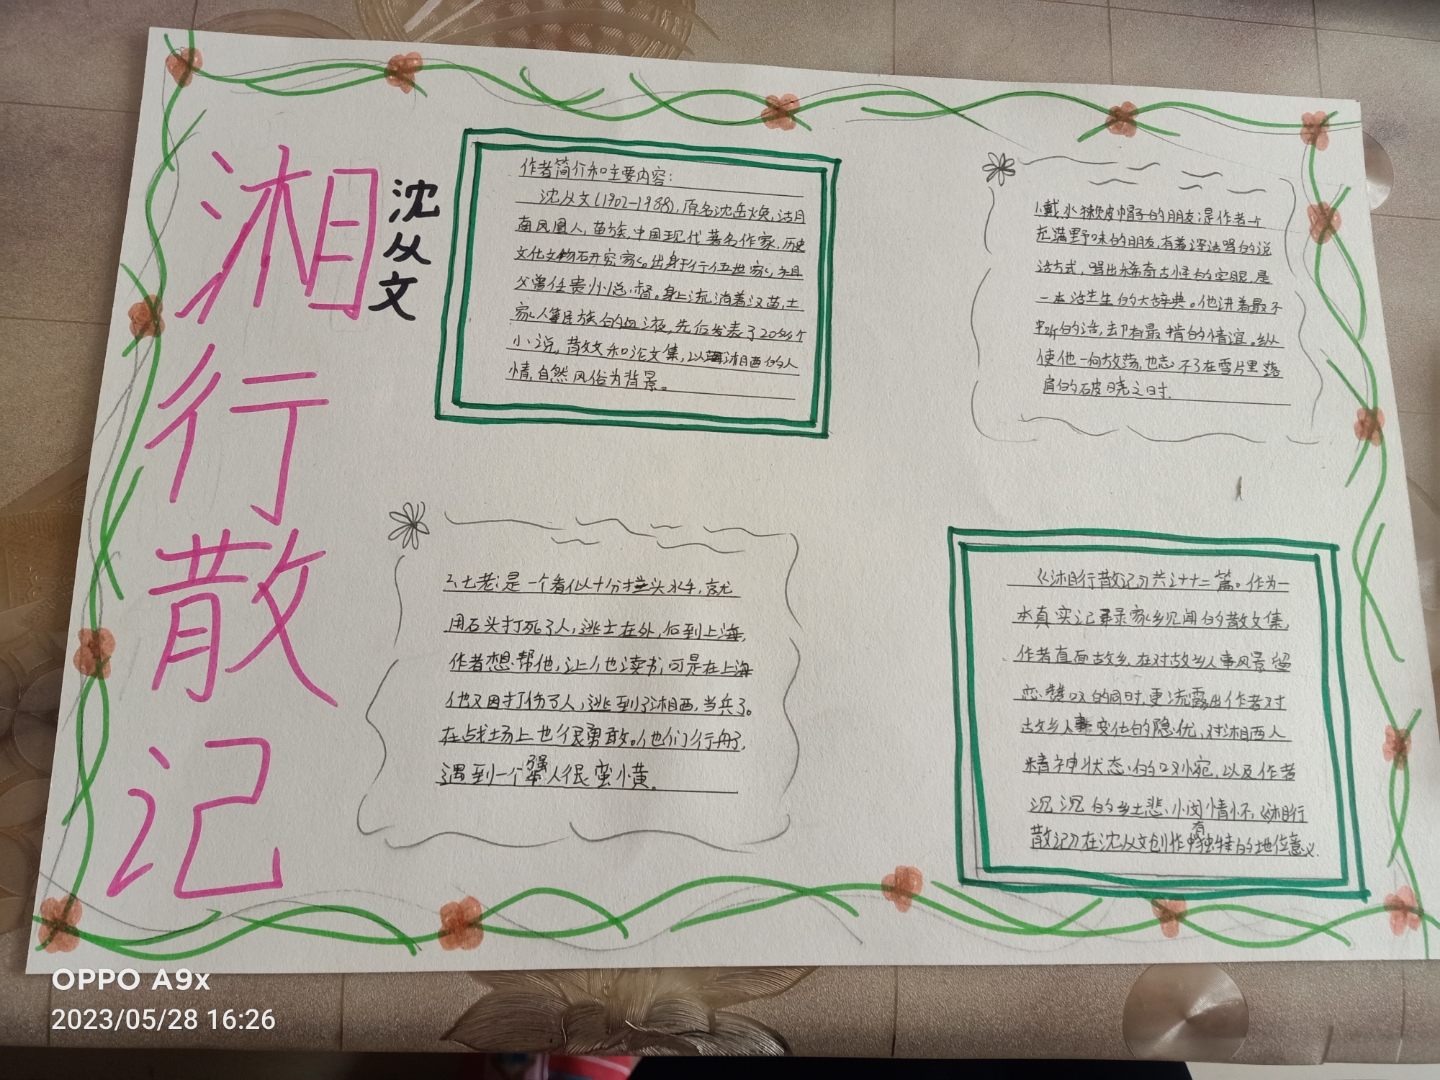 湘行散记
沈从文
作者简介和主要内容:
沈从文(1902-1988),原名沈岳焕,湖
南凤凰人,苗族,中国现代著名作家、历史
文化文物研究家。出身于行伍世家,祖
父曾任贵州总督。身上流淌着汉、苗、土
家人等民族的血液,先后发表了20多个
小说,散文和论文集,以湘西的人
情,自然风俗为背景。
1.戴水獭皮帽子的朋友:是作者一个
充满野味的朋友,有着浑话唱的说
话方式,骂出稀奇古怪的字眼,是
一本活生生的大辞典。他讲着最不
的话,却有最情的情谊。纵
使他一向放荡,也忘不了在雪片里落
肩的破晓之时.
2.七老:是一个看似十分水手,就
用石头打死了人,逃亡在外,后到上海,
作者想帮他,让他读书,可是在上海
他又因打伤了人,逃到了湘西,当兵了。
在战场上也很勇敢。他们行舟,
遇到一个强人很蛮横.
《湘行散记》共计十二篇。作为一
本真实记录家乡见闻的散文集,
作者直面故乡,在对故乡人事风景留
恋赞叹的同时,更流露出作者对
故乡人事变化的隐优,对湘西人
精神状态的叹惋,以及作者
沉沉的乡土悲悯情怀,《湘行
散记》在沈从文创作中有独特的地位意义.
OPPO A9x
2023/05/28 16:26